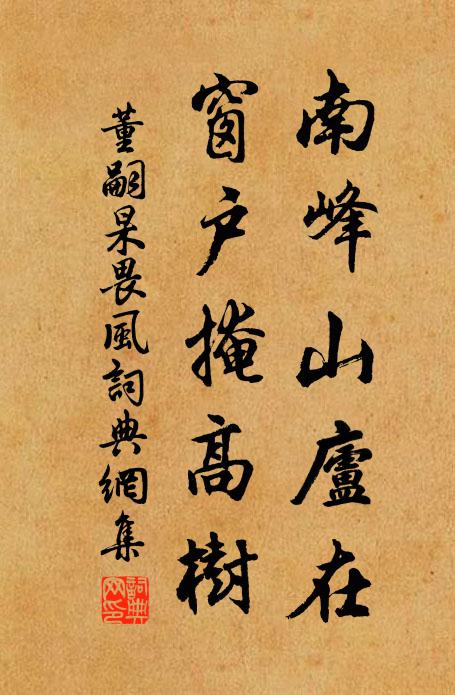 南峰山廬在
窗户掩高樹
董嗣杲畏風詞典網集
詞典網印